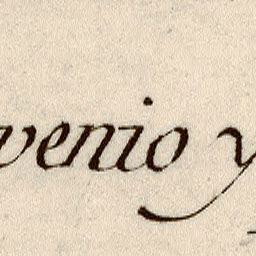 venio y